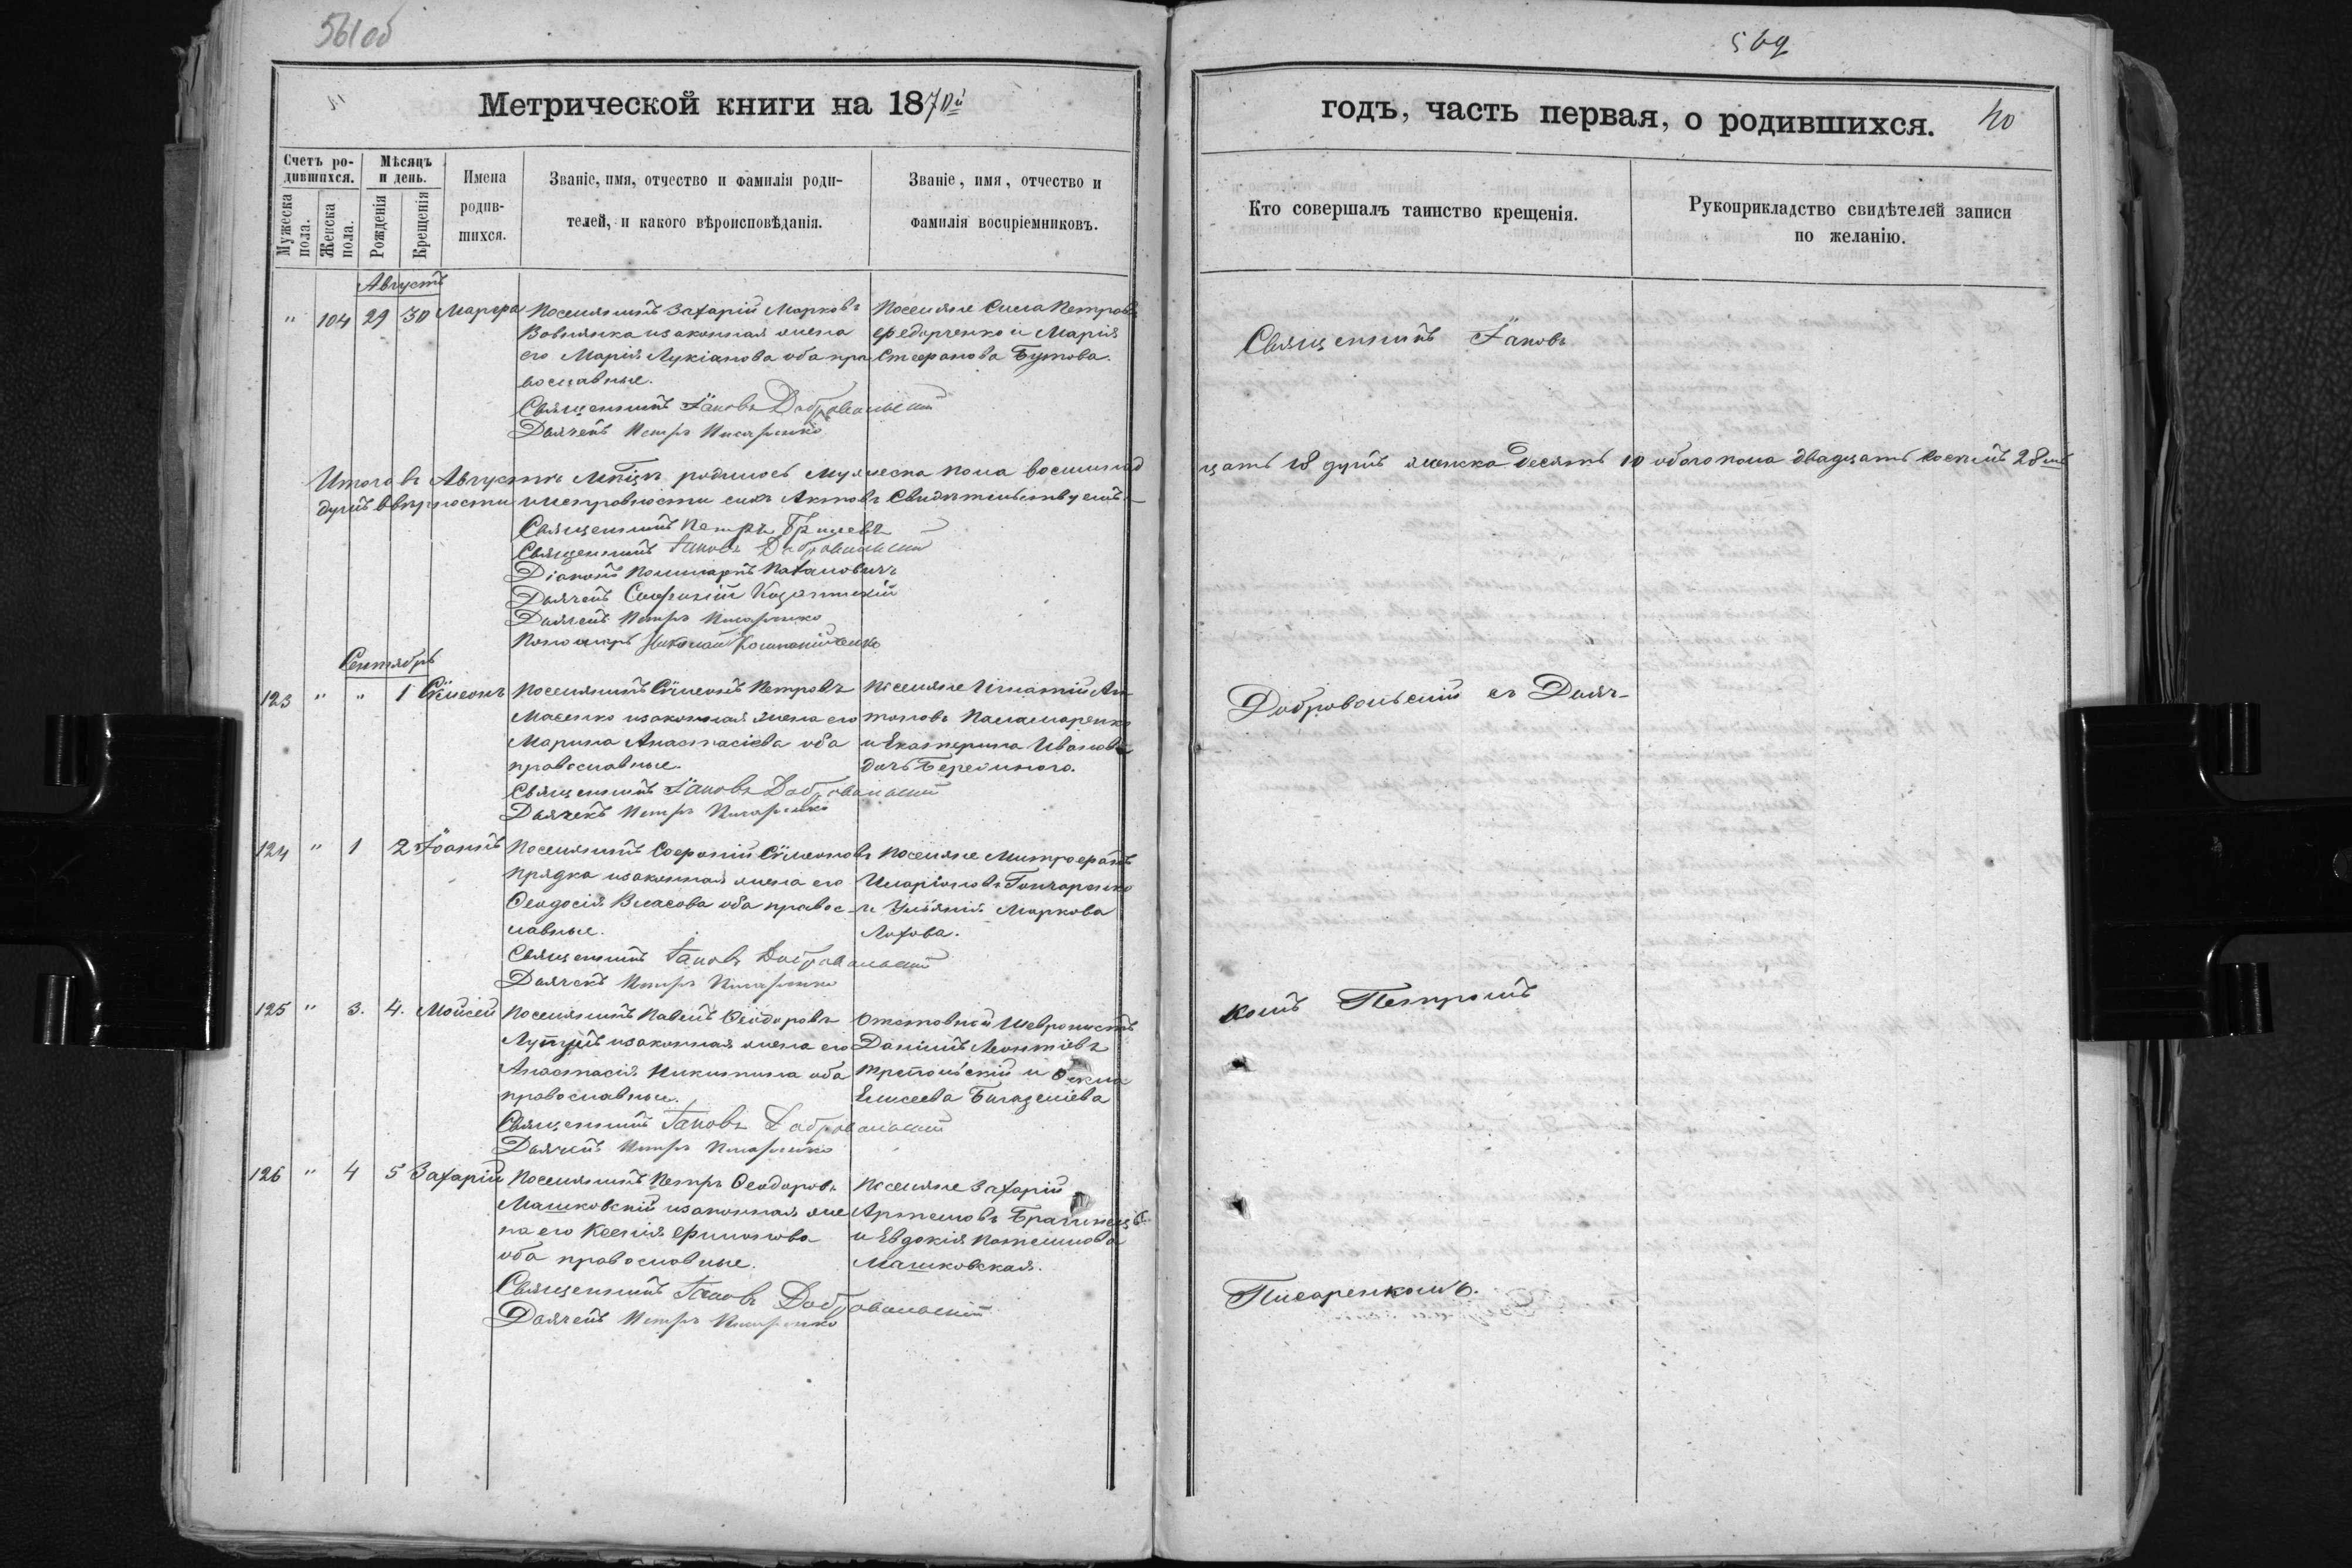 561об
Метрической книги на 1870й
Счетъ ро-
дившихся.
Мужеска пола.
Женска пола.
Мѣсяцъ
и день.
Рожденія
Крещенія
Имена
родив-
шихся.
Званіе, имя, отчество и фамилія роди-
телей, и какого вѣроисповѣданія.
Званіе, имя, отчество и
фамилія воспріемниковъ.
Августъ
" 104 29 30
Поселянинъ Захарій Марковъ
Вовнянка и законная жена
его Марія Лукіанова оба пра
вославные.
Поселяне Сила Петровъ
Федорченко и Марія
Стефанова Бутова.
Священникъ Іаковъ Добровольскій
Дьячекъ Петръ Писаренко
Итого въ Августѣ Мѣсяцѣ родилось Мужеска пола восемнад
душъ Ввѣрности и исправности сихъ Актовъ Свидѣтельствуемъ
Священникъ Петръ
Священникъ Іаковъ Добровольскій
Діаконъ
Дьячекъ Софроній
Дьячекъ Петръ Писаренко
Пономарь Николай
Сентябрь
123 " " 1 Сѵмеонъ
Поселянинъ Сѵмеонъ Петровъ
Масенко и законная жена его
Марина Анастасіева оба
православные.
Поселяне Игнатій Ан-
тоновъ Паламаренко
и Екатерина Иванова
дочь
Священникъ Іаковъ Добровольскій
Дьячекъ Петръ Писаренко
124 " 1 2 Іоаннъ
Поселянинъ Софроній Сѵмеоновъ
Прядка и законная жена его
Ѳеодосія Власова оба правос-
лавные.
Поселяне Митрофанъ
Иларіоновъ Гончаренко
и Ульянія Маркова
Лохова.
Священникъ Іаковъ Добровольскій
Дьячекъ Петръ Писаренко
125 " 3. 4. Мойсей
Поселянинъ Павелъ Ѳеодоровъ
и законная жена его
Анастасія Никитина оба
православные.
Отставной
Даніилъ Леонтіевъ
и Ѳекла
Елисеева
Священникъ Іаковъ Добровольскій
Дьячекъ Петръ Писаренко
126 " 4 5 Захарій
Поселянинъ Петръ Ѳеодоровъ
Машковскій и законная же
на его Ксенія Филипова
оба православные.
Поселяне Захарій
Артемовъ
и Евдокія
Машковская.
Священникъ Іаковъ Добровольскій
Дьячекъ Петръ Писаренко
562
годъ, часть первая, о родившихся.
40
Кто совершалъ таинство крещенія.
Рукоприкладство свидѣтелей записи
по желанію.
Священникъ Іаковъ
цать 18 душъ женска десять 10 обоего пола двадцать восемь 28мь
Добровольскій съ Дьяч-
комъ Петромъ
Писаренкомъ.